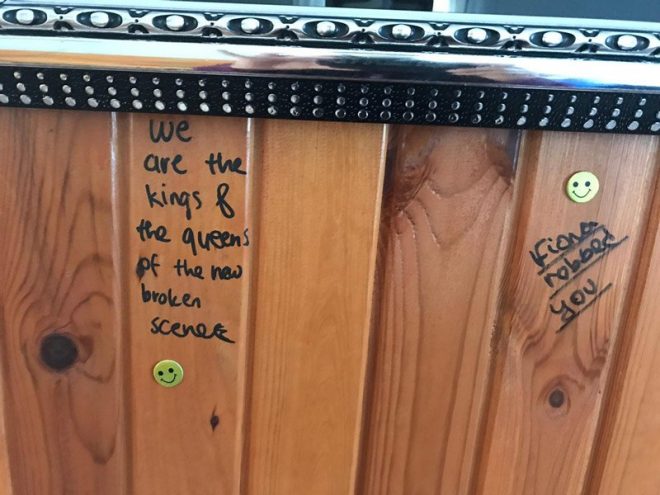 We
are the
kings &
the queens
of the new
broken
scene
Fiona
robbed
you